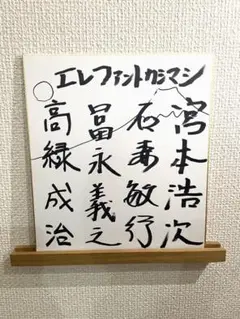 エレファントカシマシ
宮本浩次
石森敏行
冨永義之
高緑成治